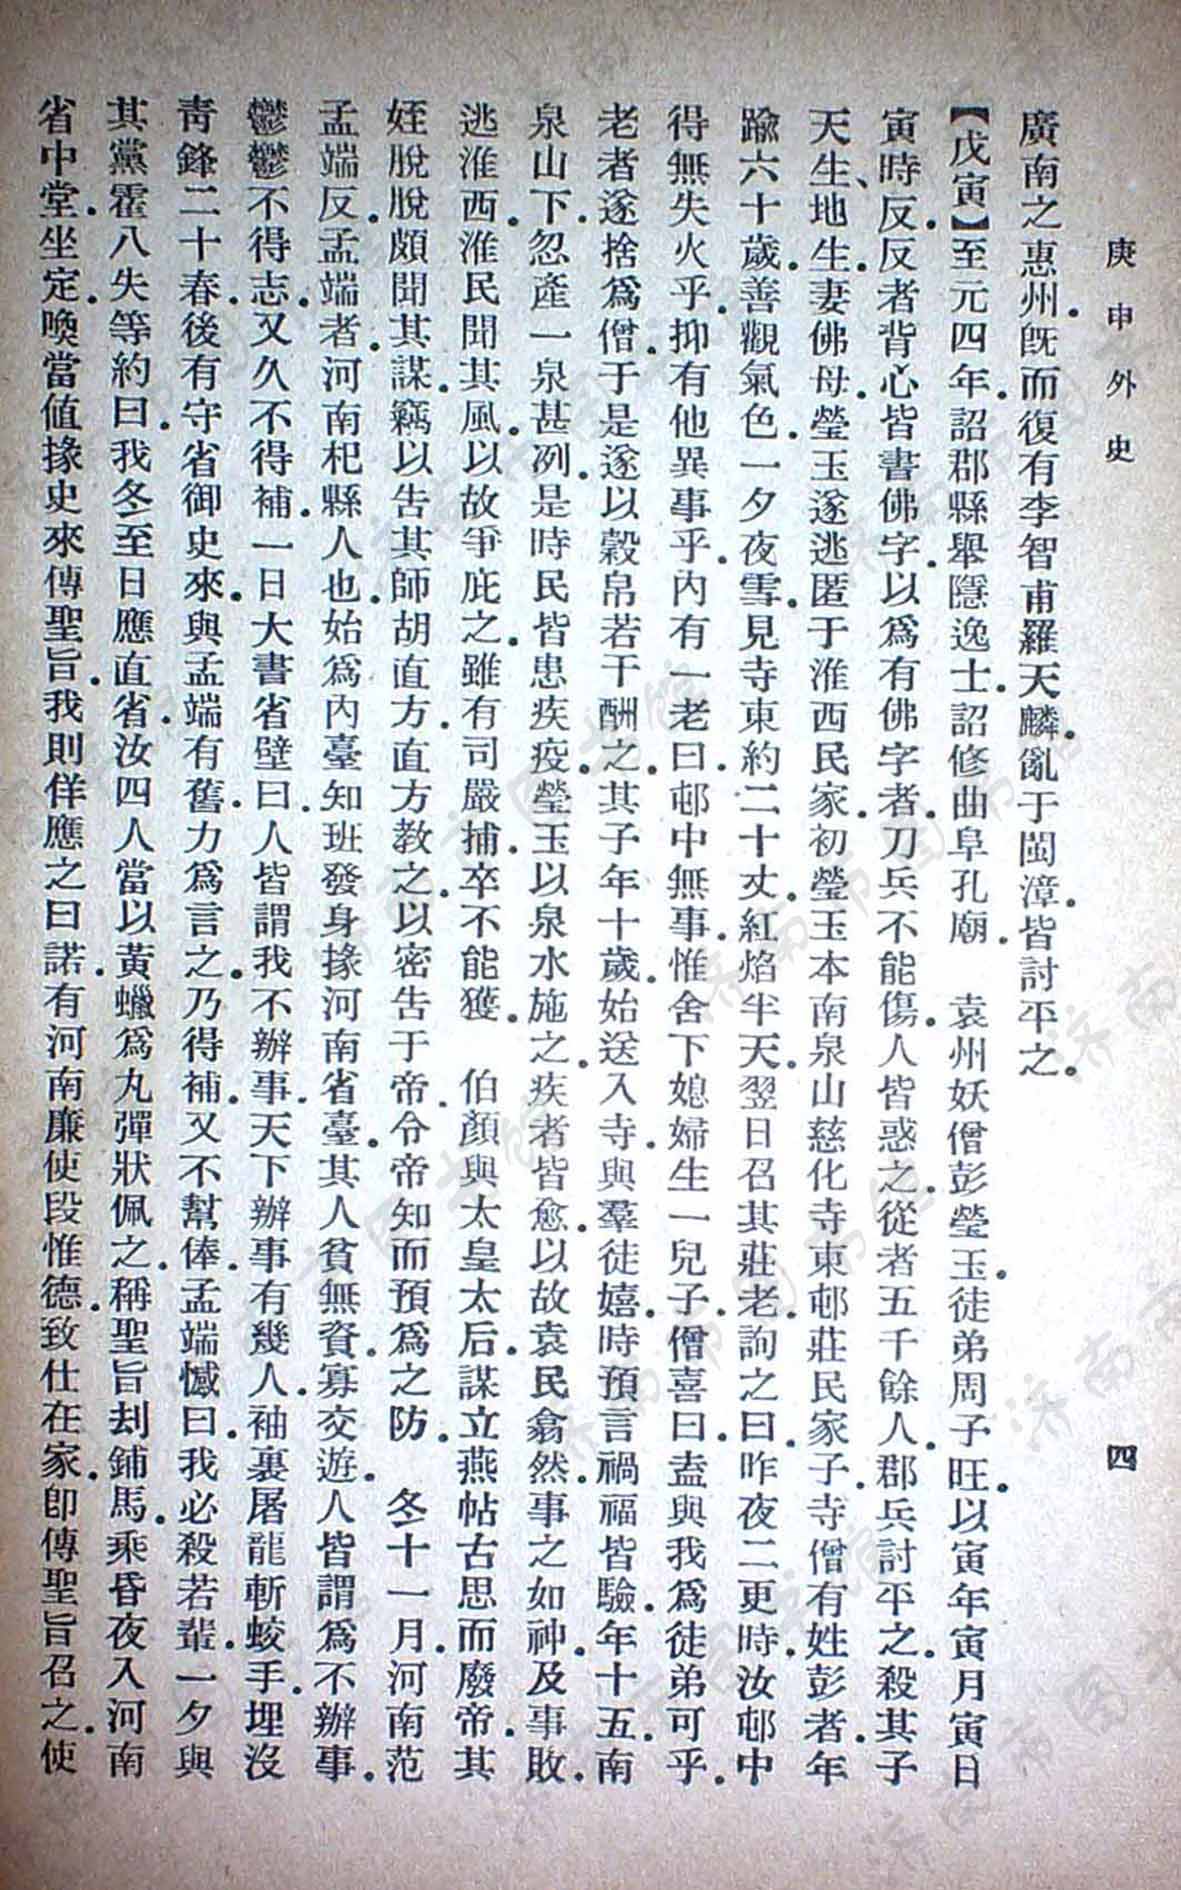 庚申外史
四
廣南之惠州。旣而復有李智甫羅天麟。亂于閩漳。皆討平之。
【戊寅】至元四年。詔郡縣舉隱逸士。詔修曲阜孔廟。　袁州妖僧彭瑩玉。徒弟周子旺。以寅年寅月寅日
寅時反。反者背心皆書佛字。以爲有佛字者。刀兵不能傷。人皆惑之。從者五千餘人。郡兵討平之。殺其子
天生、地生。妻佛母。瑩玉遂逃匿于淮西民家。初瑩玉本南泉山慈化寺東邨莊民家子。寺僧有姓彭者。年
踰六十歲。善觀氣色。一夕夜雪。見寺東約二十丈。紅焰半天。翌日召其莊老。詢之曰。昨夜二更時。汝邨中
得無失火乎。抑有他異事乎。內有一老曰。邨中無事。惟舍下媳婦生一兒子。僧喜曰。盍與我爲徒弟可乎。
老者遂捨爲僧。于是遂以穀帛若干酬之。其子年十歲。始送入寺。與羣徒嬉。時預言禍福皆驗。年十五。南
泉山下。忽產一泉甚冽。是時民皆患疾疫。瑩玉以泉水施之。疾者皆愈。以故袁民翕然。事之如神。及事敗。
逃淮西。淮民聞其風。以故爭庇之。雖有司嚴捕。卒不能獲。　伯顏與太皇太后。謀立燕帖古思而廢帝。其
姪脫脫頗聞其謀。竊以告其師胡直方。直方教之。以密告于帝。令帝知而預爲之防。　冬十一月。河南范
孟端反。孟端者。河南杞縣人也。始爲內臺知班。發身掾河南省臺。其人貧無資。寡交遊。人皆謂爲不辦事。
鬱鬱不得志。又久不得補。一日大書省壁曰。人皆謂我不辦事。天下辦事有幾人。袖裏屠龍斬蛟手。埋沒
青鋒二十春。後有守省御史來。與孟端有舊。力爲言之。乃得補。又不幫俸。孟端憾曰。我必殺若輩。一夕與
其黨霍八失等約曰。我冬至日應直省。汝四人當以黃蠟爲丸彈狀佩之。稱聖旨刦鋪馬。乘昏夜入河南
省中堂。坐定。喚當値掾史來傳聖旨。我則佯應之曰諾。有河南廉使段惟德。致仕在家。卽傳聖旨召之。使